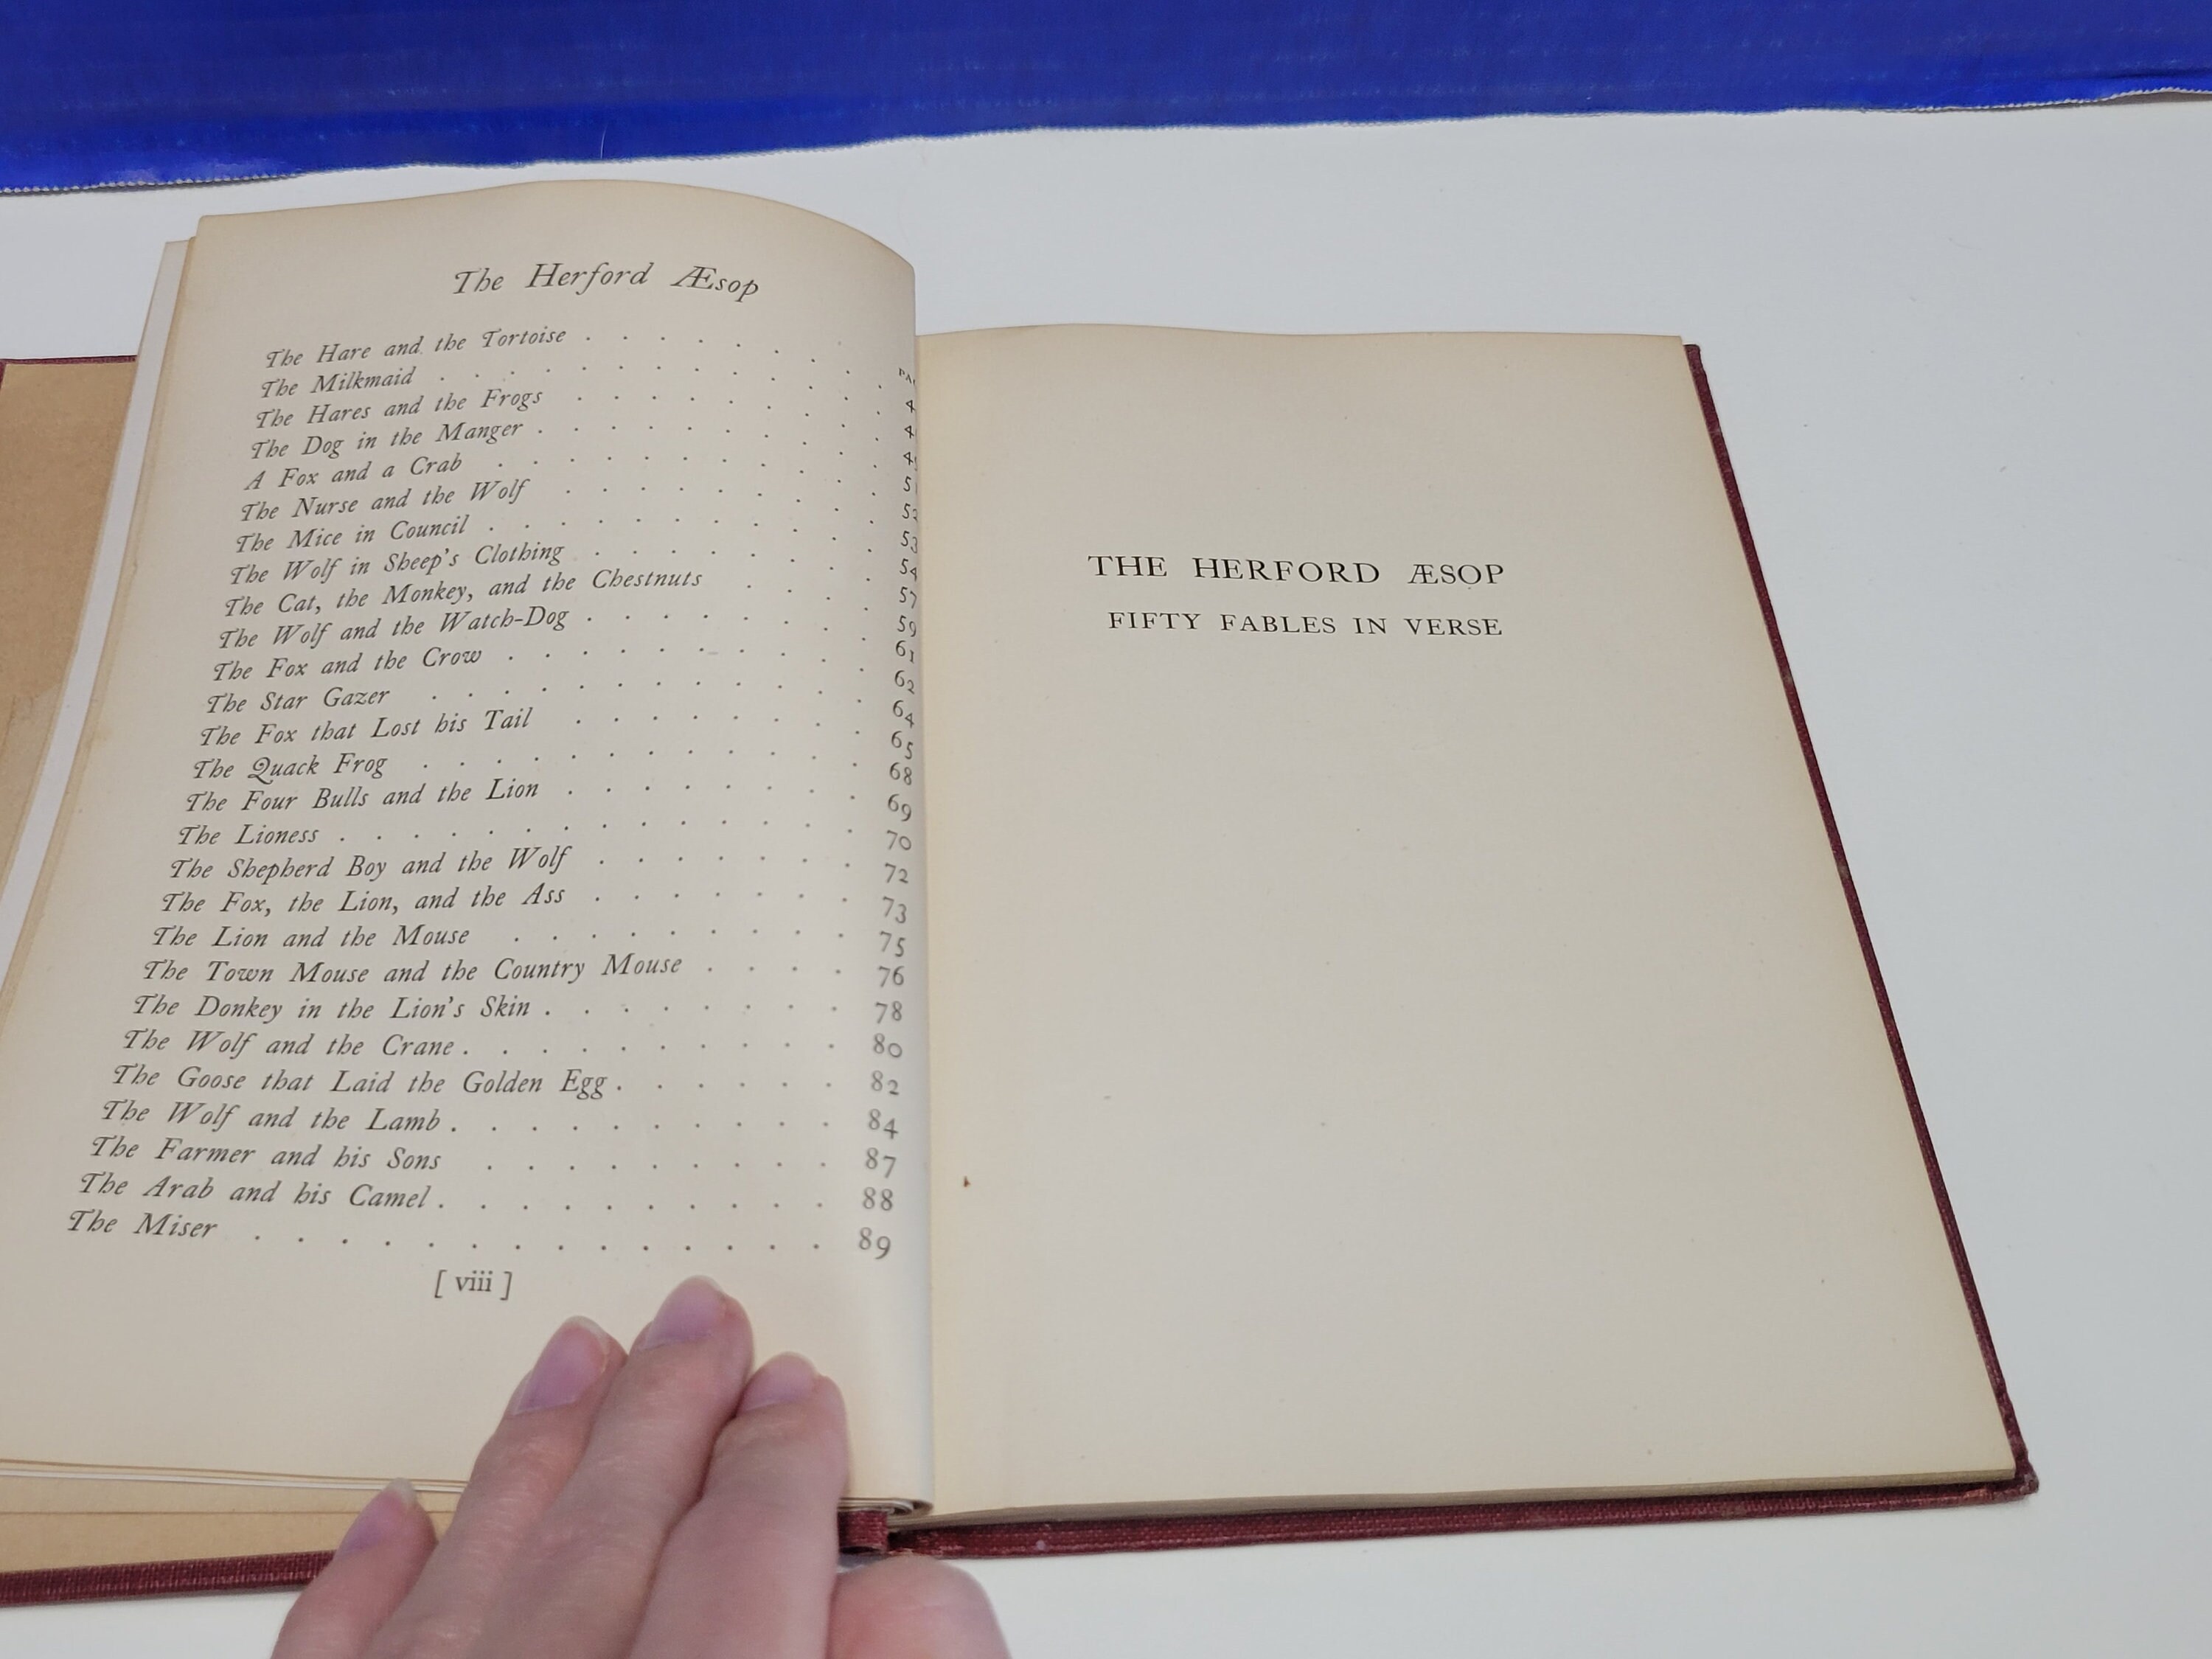 The Herford Æsop
The Hare and the Tortoise . . . . . . .
The Milkmaid . . . . . . . . . . .
The Hares and the Frogs . . . . . . . .
The Dog in the Manger . . . . . . . . . 51
A Fox and a Crab . . . . . . . . . . 52
The Nurse and the Wolf . . . . . . . . 53
The Mice in Council . . . . . . . . . . 54
The Wolf in Sheep's Clothing . . . . . . . 57
The Cat, the Monkey, and the Chestnuts . . . . 59
The Wolf and the Watch-Dog . . . . . . . 61
The Fox and the Crow . . . . . . . . . 62
The Star Gazer . . . . . . . . . . . 64
The Fox that Lost his Tail . . . . . . . . 65
The Quack Frog . . . . . . . . . . . 68
The Four Bulls and the Lion . . . . . . . . 69
The Lioness . . . . . . . . . . . . . 70
The Shepherd Boy and the Wolf . . . . . . . 72
The Fox, the Lion, and the Ass . . . . . . . 73
The Lion and the Mouse . . . . . . . . . 75
The Town Mouse and the Country Mouse . . . . 76
The Donkey in the Lion's Skin . . . . . . . . 78
The Wolf and the Crane . . . . . . . . . . 80
The Goose that Laid the Golden Egg . . . . . . 82
The Wolf and the Lamb . . . . . . . . . . 84
The Farmer and his Sons . . . . . . . . . 87
The Arab and his Camel . . . . . . . . . . 88
The Miser . . . . . . . . . . . . . . 89
[ viii ]
THE HERFORD ÆSOP
FIFTY FABLES IN VERSE